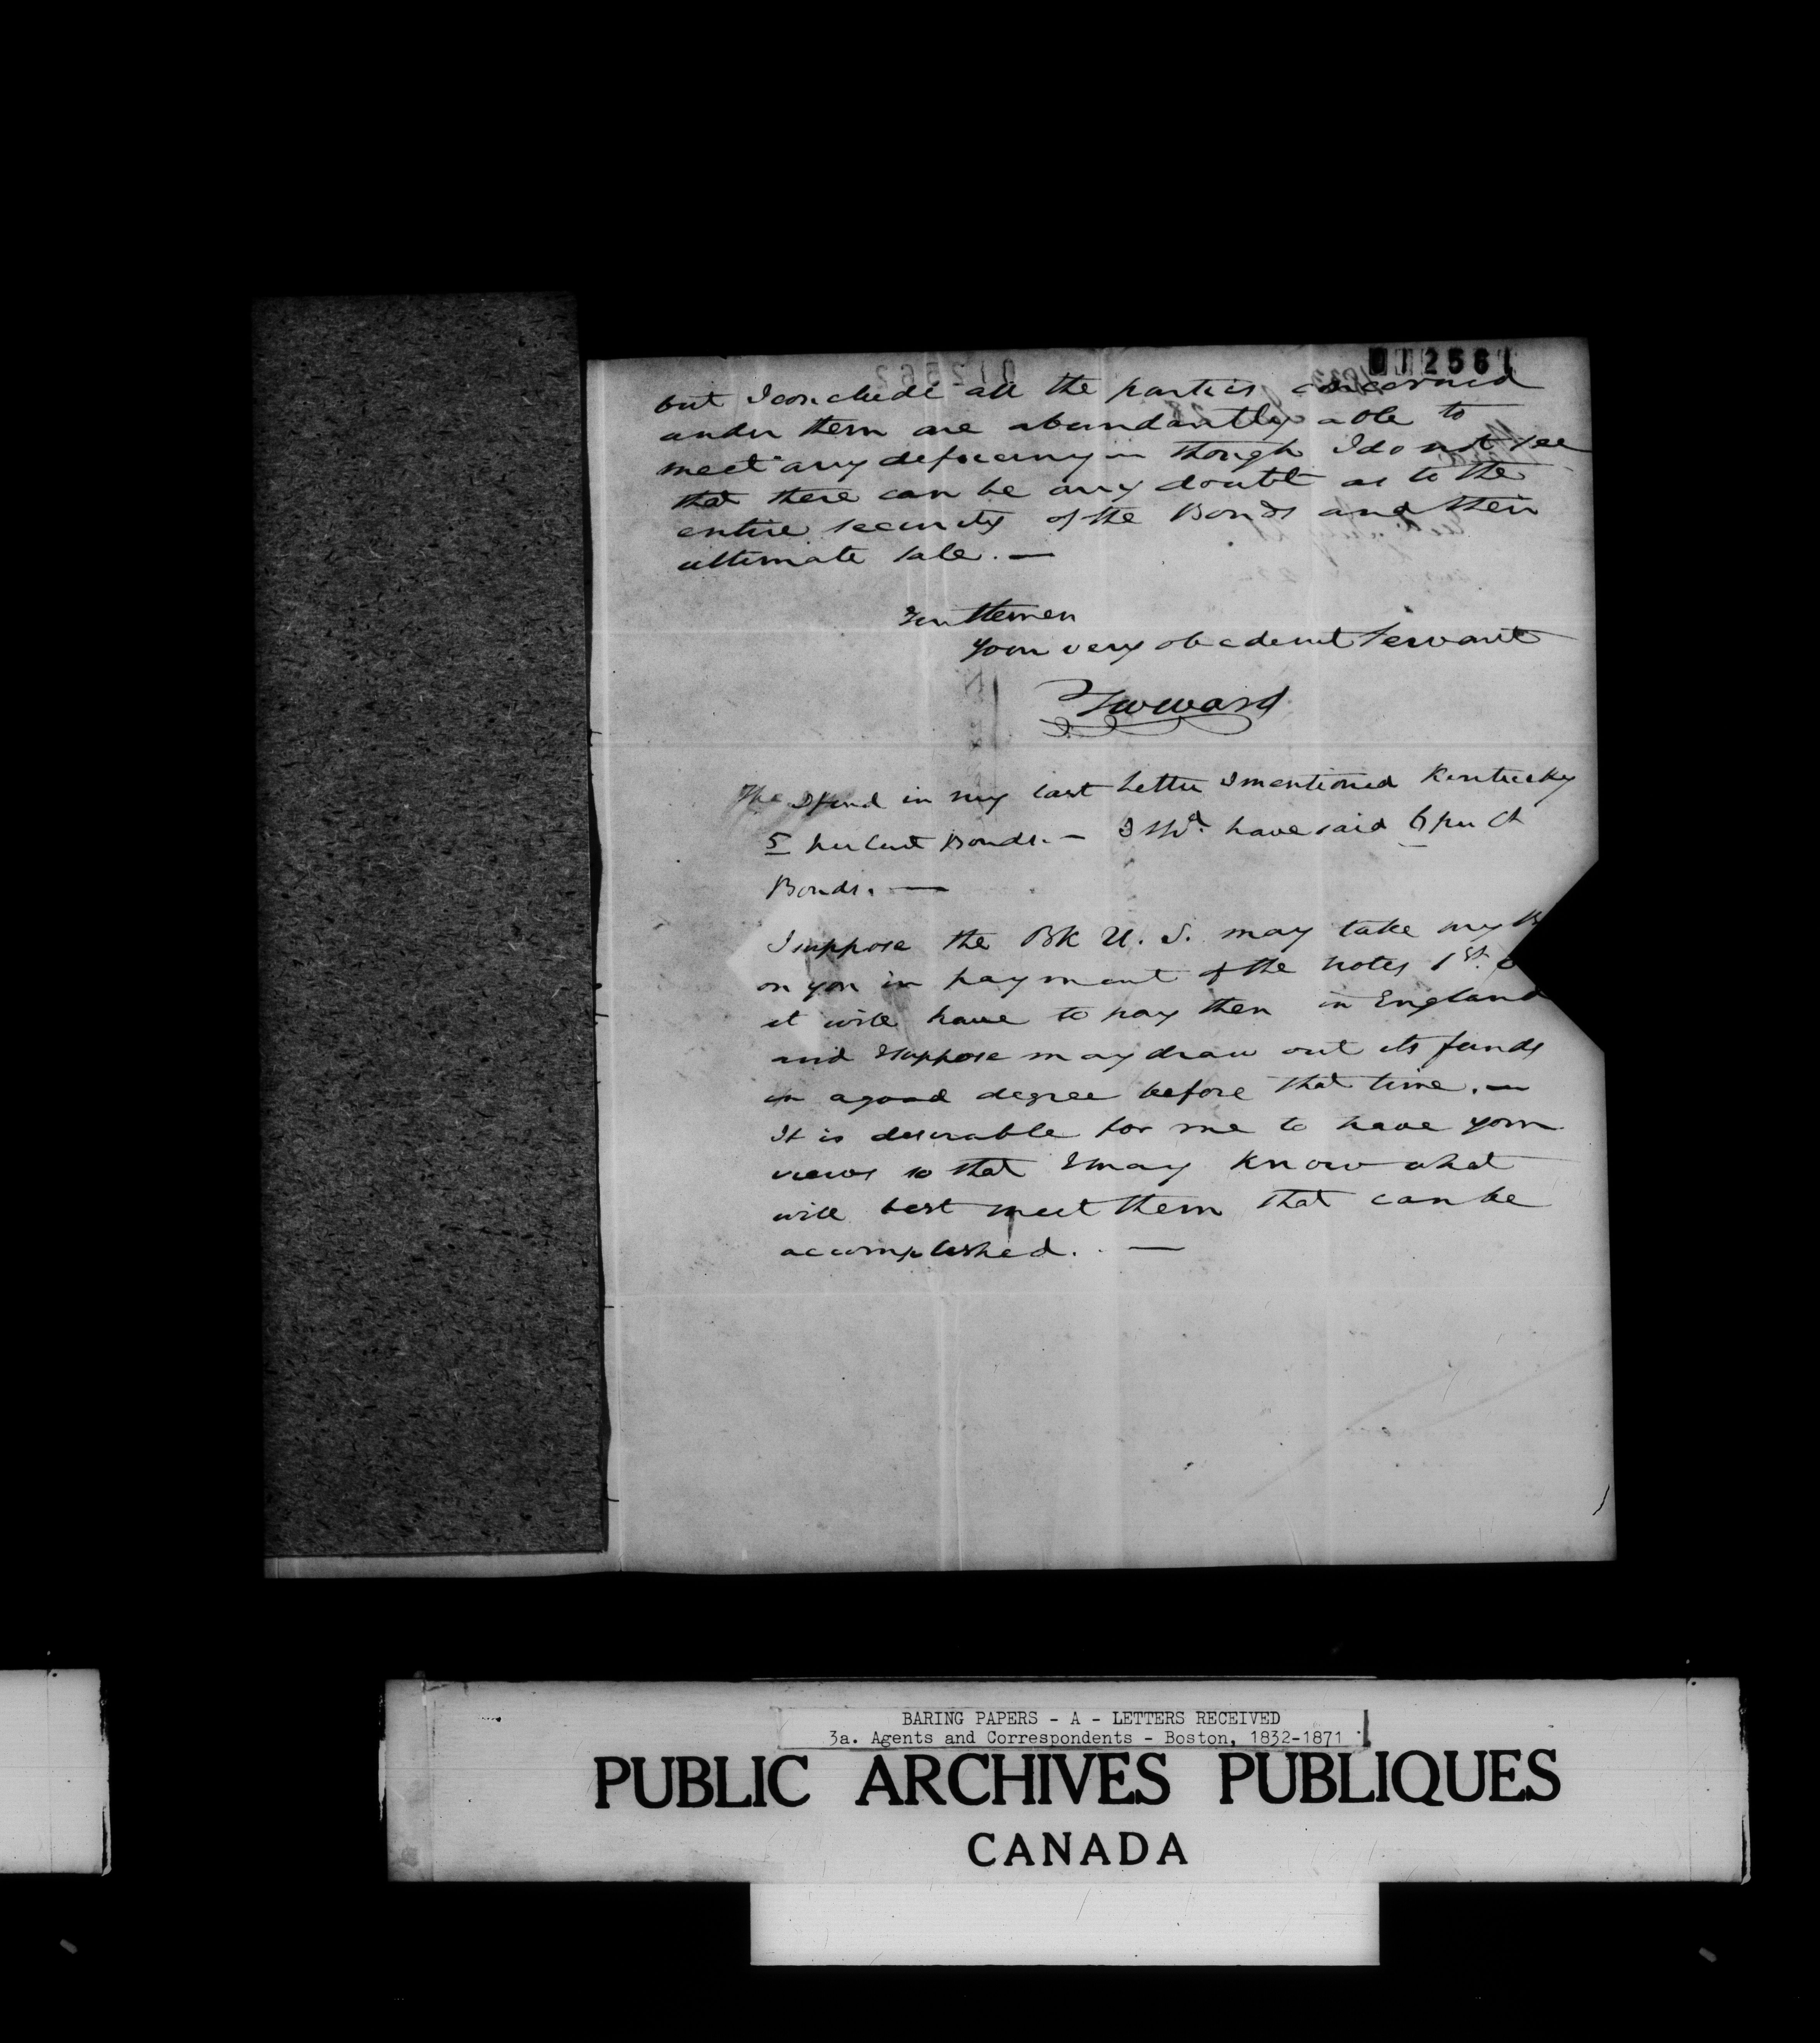 012561
but I conclude all the parties concerned
under them are abundantly able to
meet any deficiency in though I do not see
that there can be any doubt as to the
entire security of the Bonds and their
ultimate sale. —
Gentlemen
Your very obedient Servant
TWWard
I find in my last letter I mentioned Kentucky
5 per Cent Bonds. — I shd. have said 6 per Ct
Bonds. —
I suppose the BK U. S. may take my
on you in payment of the notes 1st.
it will have to pay then in England
and I suppose may draw out its funds
in a good degree before that time. —
It is desirable for me to have your
views so that I may Know what
will best meet them that can be
accomplished. —
BARING PAPERS - A - LETTERS RECEIVED
3a. Agents and Correspondents - Boston, 1832-1871
PUBLIC ARCHIVES PUBLIQUES
CANADA